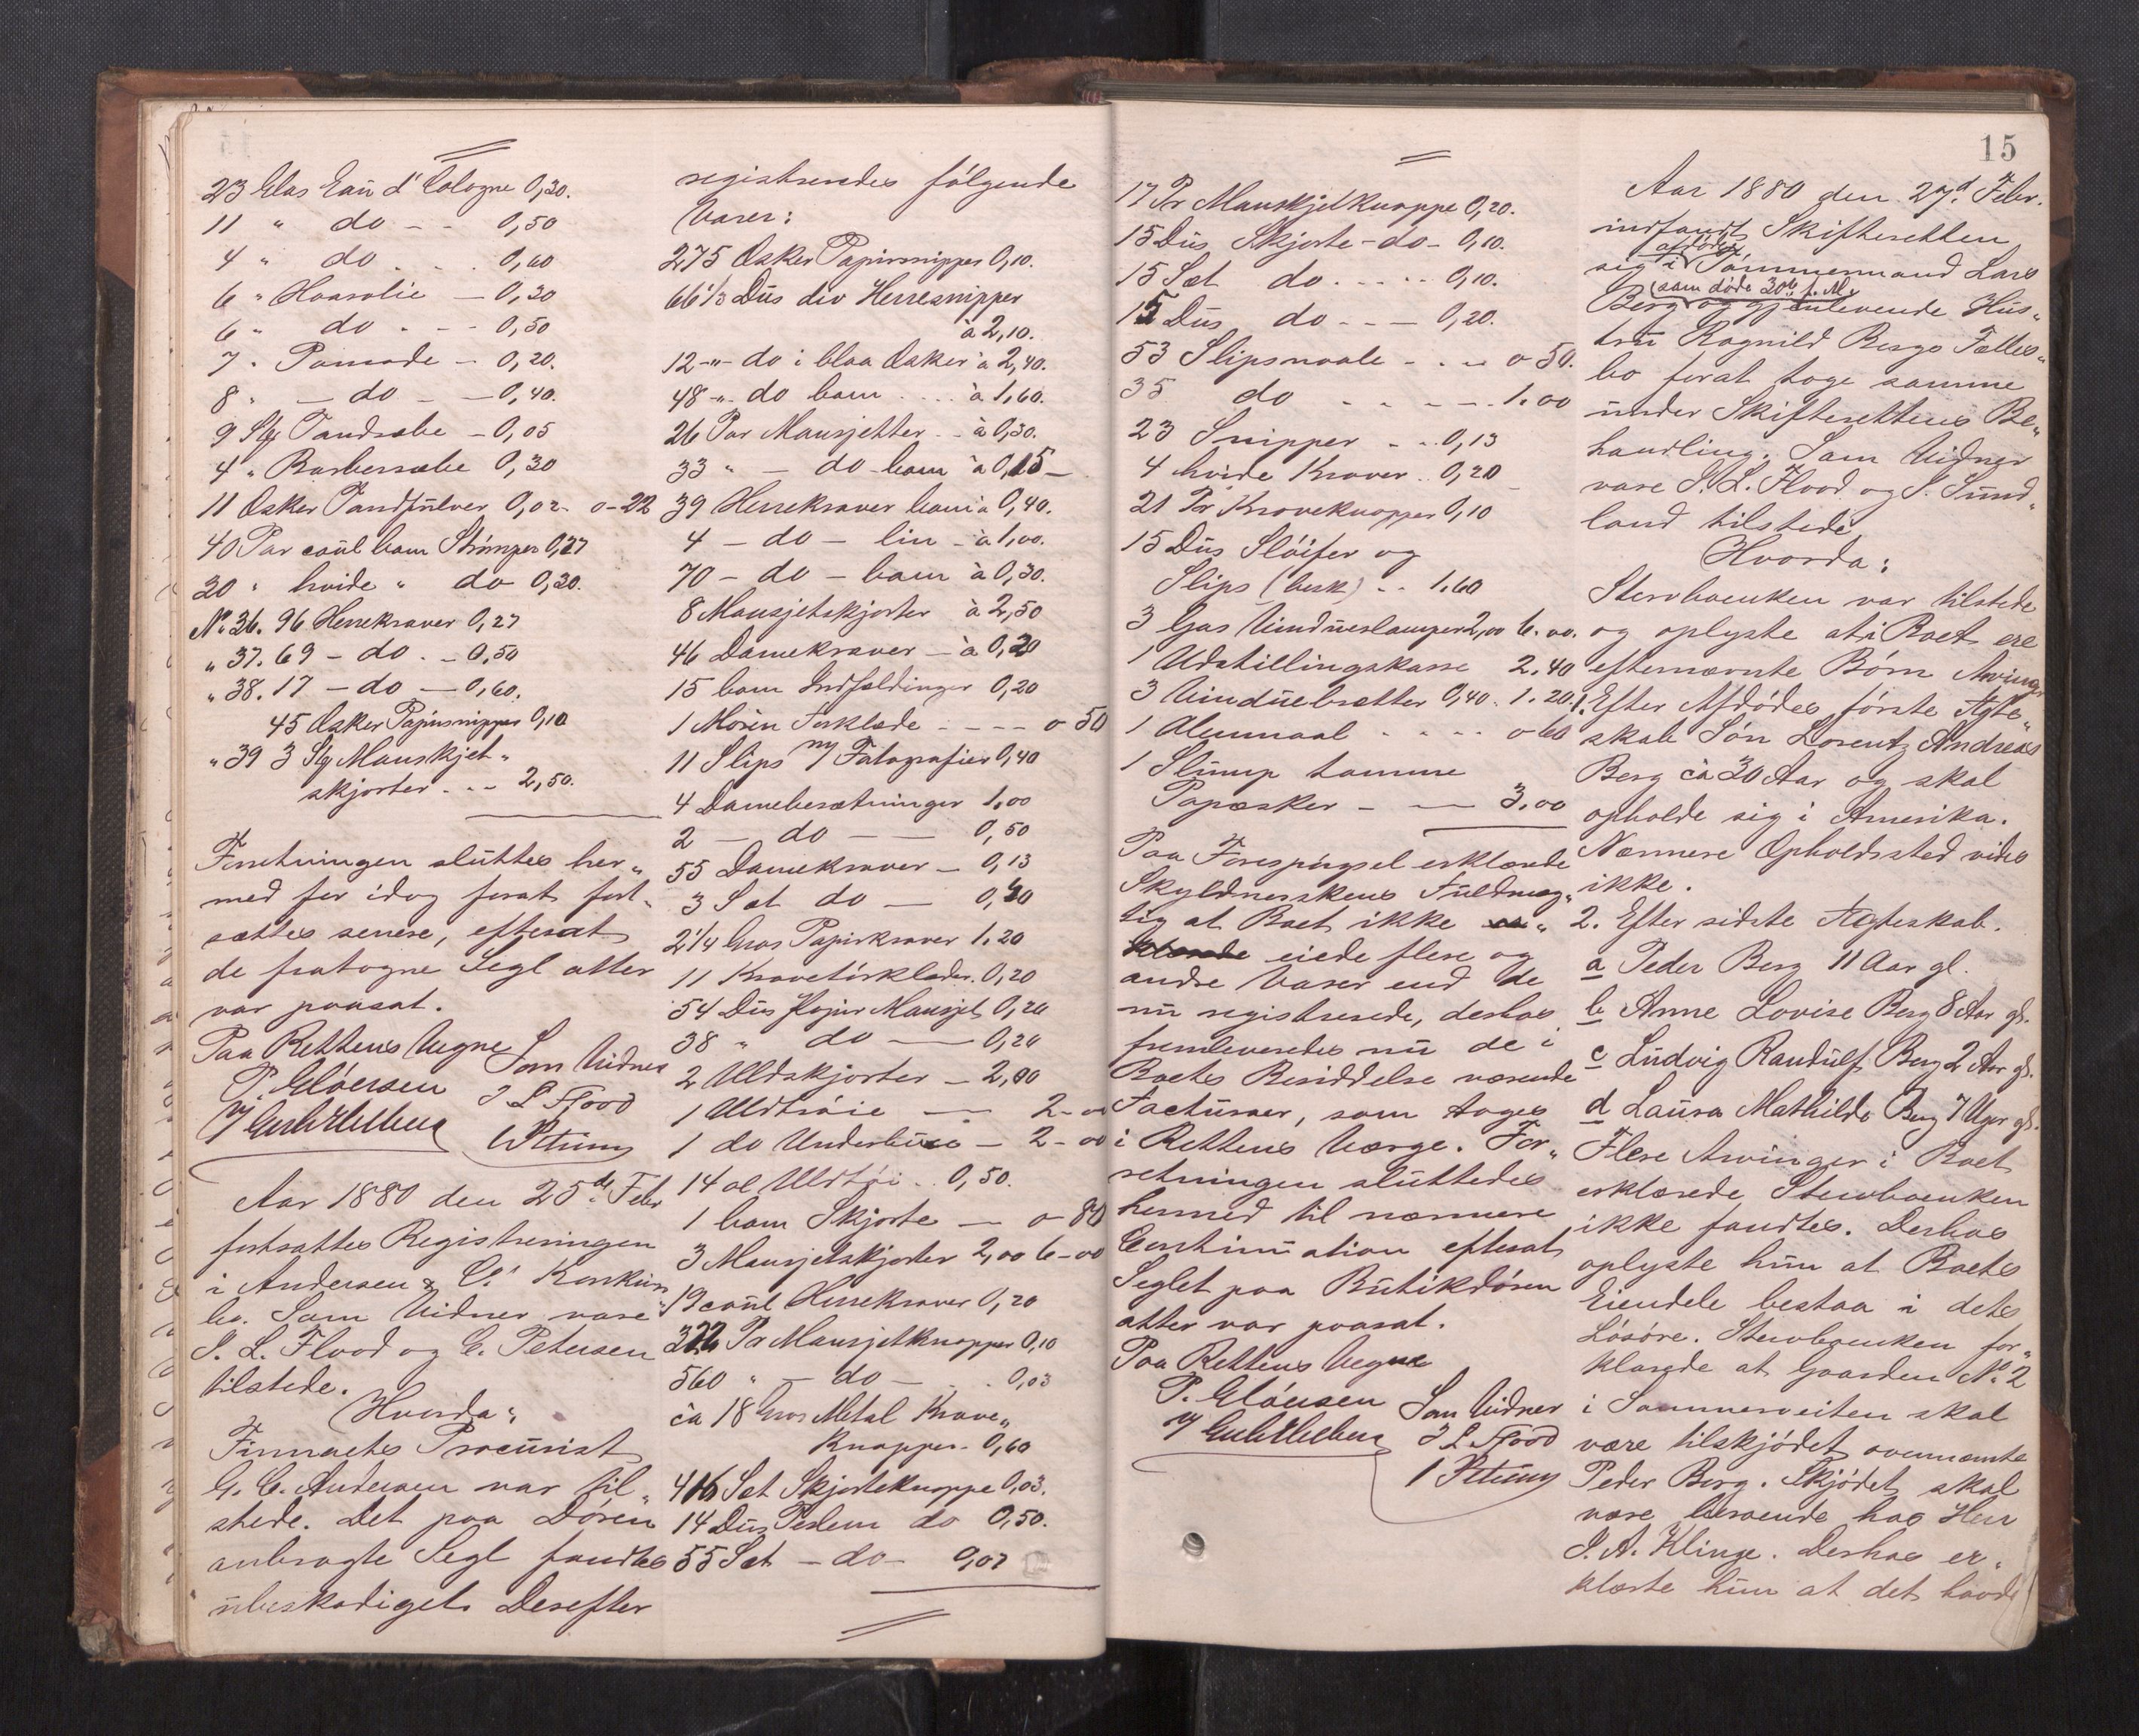 23 Glas Eau d' Cologne 0,30.
11 " do - - 0,50
4 " do . . . 0,60
6 " Haarolie - 0,30
6 " do . - - 0,50
7 . Pomade - 0,20.
8 " - do - - 0,40.
9 Sty Tandsæbe - 0,05
4 " Barbersæbe 0,30
11 Æsker Tandpulver 0,02 - 0-22
40 Par coul bom Strømper 0,27
30 " hvide " do 0,30.
No 36. 96 Herrekraver 0,27
" 37. 69 - do . - 0,50
" 38. 17 - do - 0,60.
45 Æsker Papirsnipper 0,10
" 39 3 Sty Manskjet"
skjorter . . - 2,50.
Forretningen sluttes her"
med for idag forat fort"
sættes senere, efterat
de fratagne Segl atter
var paasat.
Paa Rettens Vegne
P. Gløersen
Som Vidner
J L Flood
C Petersen
Aar 1880 den 25de Febr
fortsattes Registreringen
i Andersen & Co's Konkurs"
bo. Som Vidner vare
J. L. Flood og C. Petersen
tilstede.
Hvorda:
Firmaets Procurist
G. C. Andersen var til"
stede. Det paa Døren
anbragte Segl fandtes
ubeskadiget. Derefter
registreredes følgende
Varer:
275 Æsker Papirsnipper 0,10.
66 1/3 Dus div Herresnipper
à 2,10.
12 -"- do i blaa Æsker à 2,40.
48 -"- do bom . . . à 1,60.
26 Par Mansjetter - - à 0,30.
33 " - do bom à 0,15 -
39 Herrekraver bom à 0,40.
4 - do - lin - à 1,00.
70 - do - bom à 0,30.
8 Mansjetskjorter à 2,50
46 Damekraver - à 0,20
15 bom Indfældinger 0,20
1 Moiren Forklæde - - - - 0 50
11 Slips m/ Fotografier 0,40
4 Damebesætninger 1,00
2 - do - - 0,50
55 Damekraver - 0,13
3 Sæt do - 0,40
2 1/4 Gros Papirkraver 1.20
11 Kravetørklæder. 0,20
54 Dus Papir Mansjet 0,20
38 " do - 0,20
2 Uldskjorter - 2,00
1 Uldtrøie - 2-00
1 do Underbuxe - 2-00
14 al Uldtøi . . 0,50.
1 bom Skjorte - 0 80
3 Mansjetskjorter 2,00 6-00
19 coul Herrekraver 0,20
322 Pr Mansjetknapper 0,10
560 " - do - . . 0,03
ca 18 Gros Metal Krave"
Knapper - 0,60
416 Sæt Skjorteknappe 0,03.
14 Dus Perlem do 0,50.
55 Sæt - do - 0,07
17 Pr Manskjetknappe 0,20.
15 Dus Skjorte - do - 0,10.
15 Sæt do . . . . 0,10.
15 Dus do - - - 0,20.
53 Slipsnaale - . - 0 50.
35 do - - - - 1.00
23 Snipper - . . 0,13
4 hvide Kraver . . 0,20
21 Pr Kraveknapper 0,10
15 Dus Sløifer og
Slips (besk) . . 1.60
3 Gas Vinduslamper 2,00 6.00.
1 Udstillingskasse 2.40
3 Vinduebretter 0,40 . 1.20
1 Alenmaal . - . . 0 60
1 Slump tomme
Papæsker - - 3.00
Paa Forespørgsel erklærede
Skyldnerskens Fuldmæg"
tig at Boet ikke
eiede flere og
andre Varer end de
nu registrerede, derhos
fremleveredes nu de i
Boets Besiddelse værende
Facturaer, som toges
i Rettens Værge. For"
retningen sluttedes
hermed til nærmere
Continuation efterat
Seglet paa Butikdøren
atter var paasat.
Paa Rettens Vegne
P. Gløersen
Som Vidner
J L Flood
C Petersen
15
Aar 1880 den 27d. Febr.
indfandt Skifteretten
afdøde
sig i Tømmermand Lars
(som døde 30te f. M.
Berg og gjenlevende Hus"
tru Ragnild Bergs Fælles"
bo forat tage samme
under Skifterettens Be"
handling. Som Vidner
vare J. L. Flood og S. Sund"
land tilstede
Hvorda:
Stervboenken var tilstede
og oplyste at i Boet ere
efternævnte Børn Arvinger
1. Efter Afdødes første Ægte"
skab Søn Lorentz Andreas
Berg ca 30 Aar og skal
opholde sig i Amerika.
Nærmere Opholdssted vides
ikke.
2. Efter sidste Ægteskab.
a Peder Berg 11 Aar gl.
b Anne Lovise Berg 8 Aar gl.
c Ludvig Randulf Berg 2 Aar gl.
d Laura Mathilde Berg 7 Uger gl.
Flere Arvinger i Boet
erklærede Stervboenken
ikke fandtes. Derhos
oplyste hun at Boets
Eiendele bestaa i dets
Løsøre. Stervboenken for"
klarede at Gaarden No 2
i Sommerveiten skal
være tilskjødet ovennævnte
Peder Berg. Skjødet skal
være beroende hos Herr
J. A. Klinge. Derhos er"
klærte hun at det havde